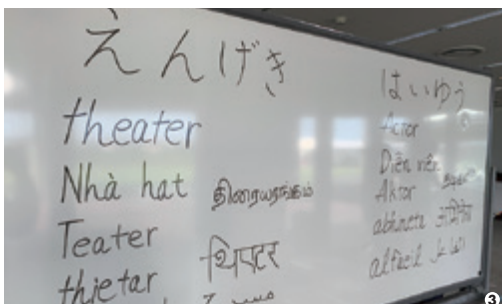 えんげき
theater
Nhà hát திரையரங்கம்
Teater
थिएटर
thietar
はいゆう
Actor
Diễn viên
Aktor
abhineta
alfaeil
3